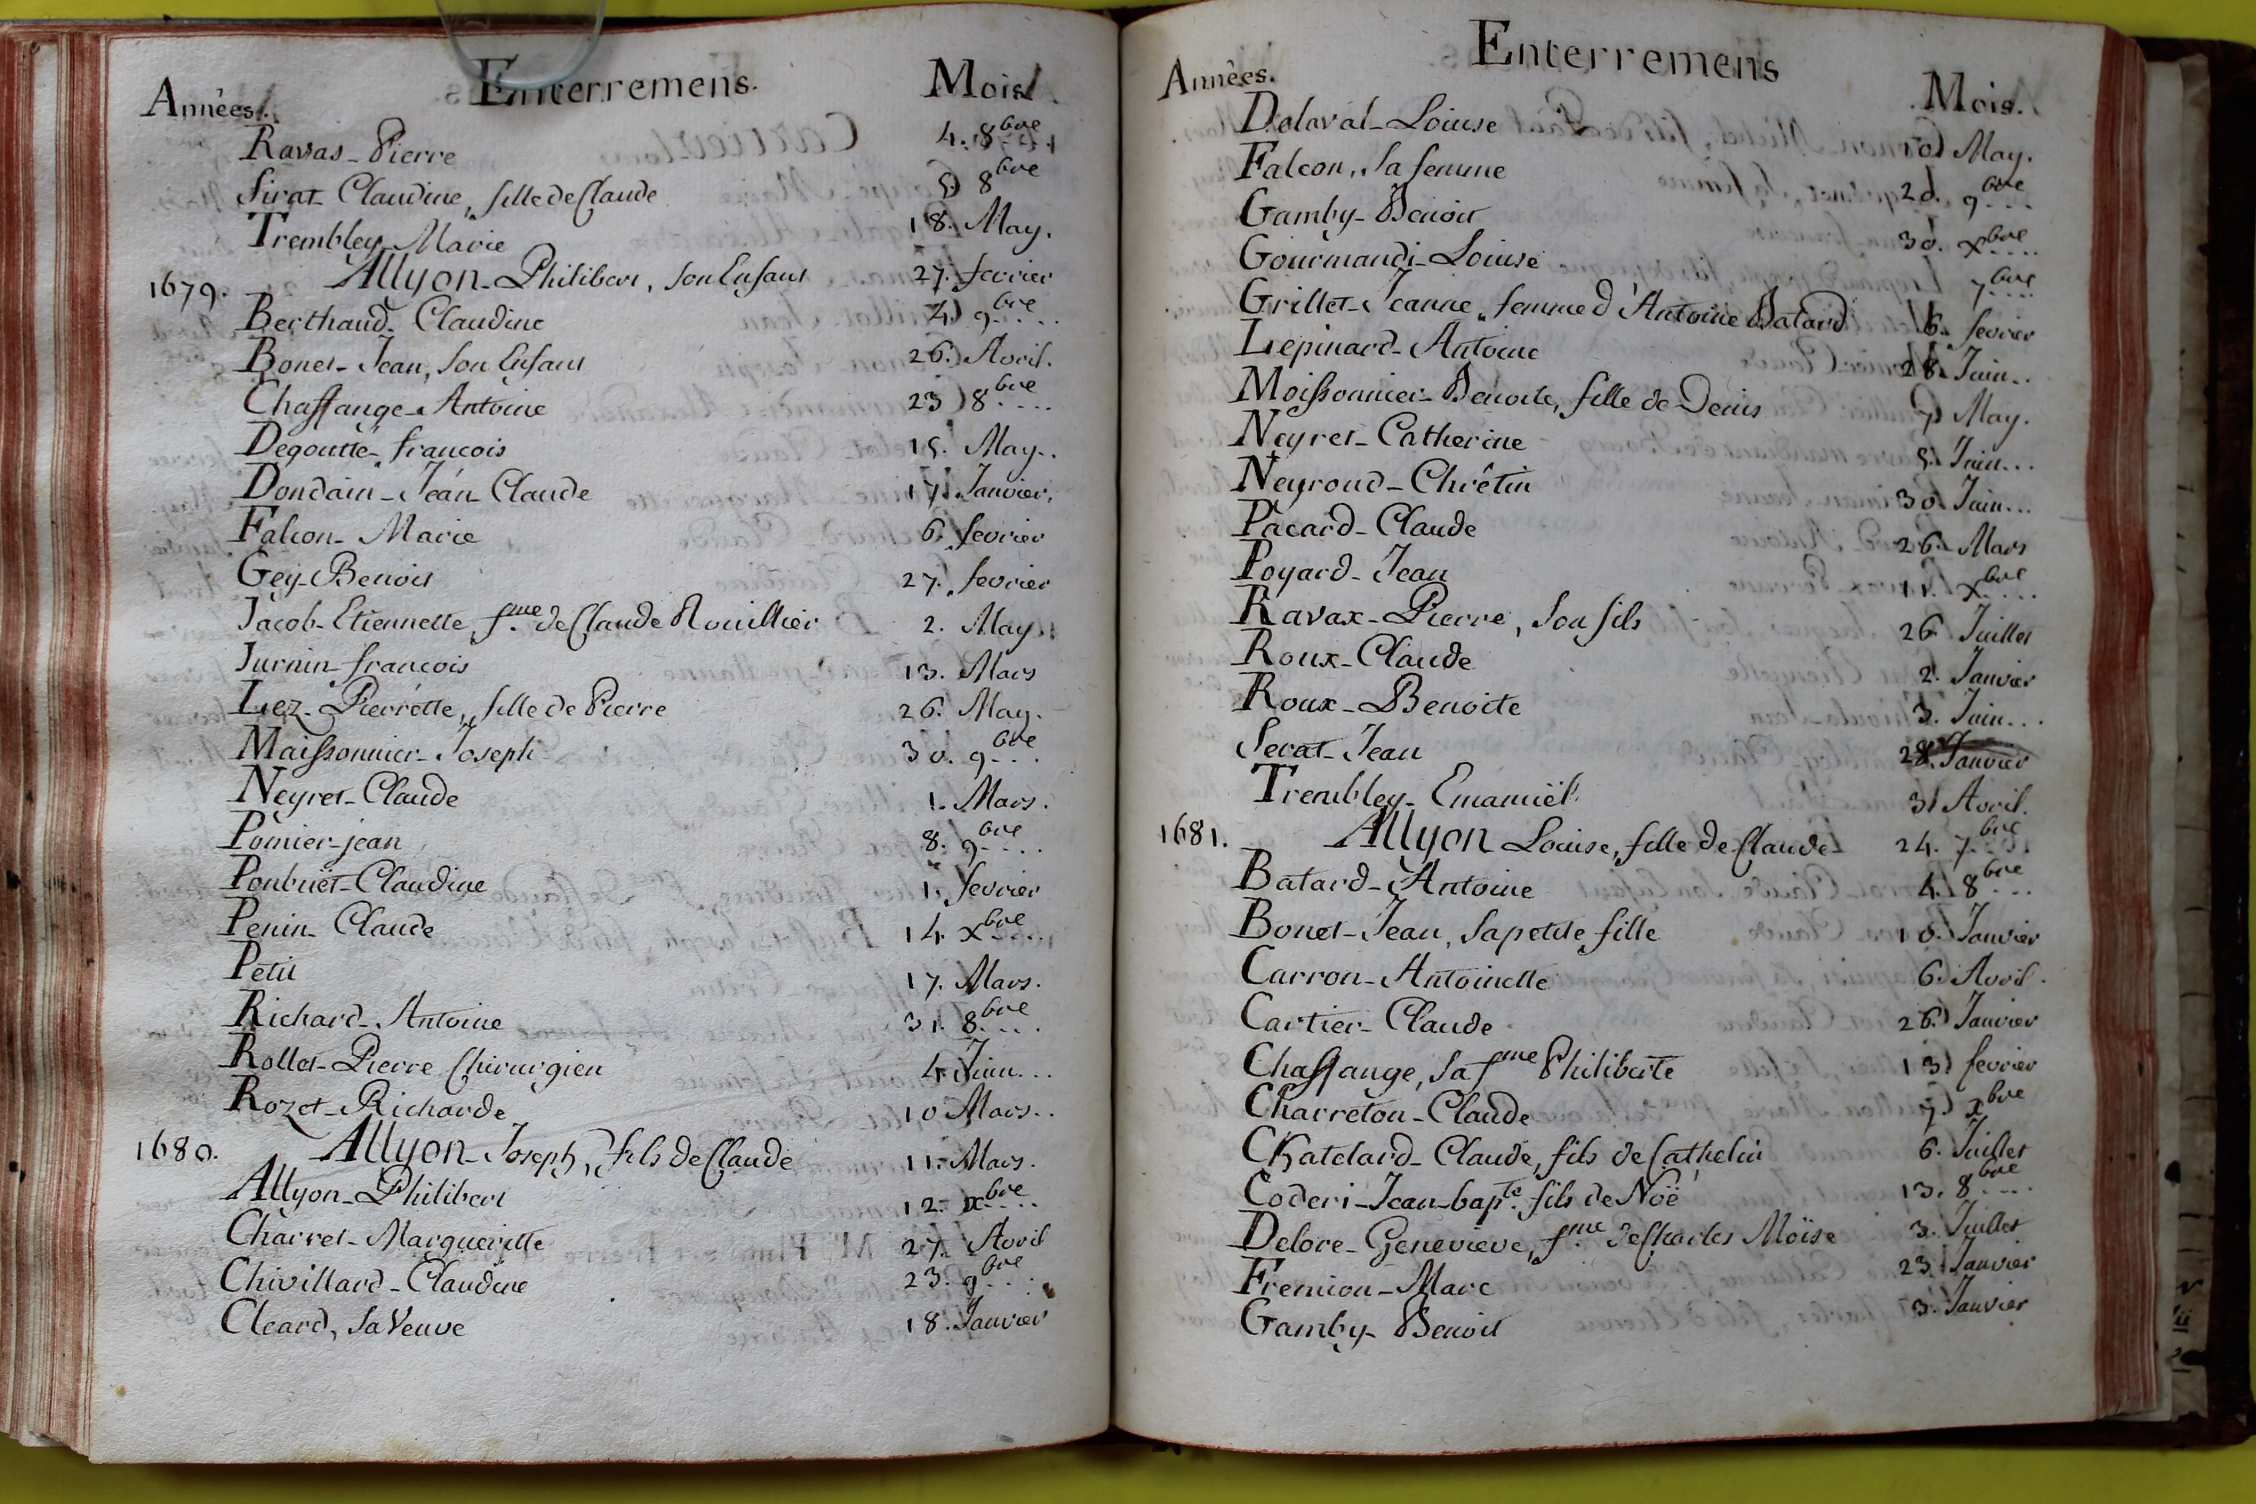 Années. Enterremens. Mois
Ravas - Pierre 4. 8bre
Sirat - Claudine, fille de Claude 5 8bre
Trembley Marie 18. May.
1679. Allyon - Philibert, son Enfant 27. fevrier
Berthaud - Claudine 4 9bre....
Bonet - Jean, son Enfant 26. Avril.
Chassange - Antoine 23 8bre....
Degoutte - francois 15. May..
Dondain - Jean Claude 17. Janvier.
Falcon - Marie 6. fevrier
Gey - Benoit 27. fevrier
Jacob - Etiennette, fme de Claude Rouillier 2. May
Jurnin - francois 13. Mars
Lez - Pierrette, fille de Pierre 26. May.
Maissonnier - Joseph 30. 9bre...
Neyret - Claude 1. Mars.
Pomier - jean 8. 9bre....
Ponbuet - Claudine 1. fevrier
Penin - Claude 14. xbre....
Petit 17. Mars.
Richard - Antoine 31. 8bre....
Rollet - Pierre Chirurgien 4 Juin...
Rozet - Richarde 10 Mars..
1680. Allyon - Joseph, fils de Claude 11. Mars.
Allyon - Philibert 12. xbre....
Charret - Marguerite 27. Avril
Chivillard - Claudine 23. 9bre...
Cleard, sa Veuve 18. Janvier
Années. Enterremens Mois.
Delaval - Louise 10 May.
Falcon, sa femme 20. 9bre...
Gamby - Benoit 30. xbre....
Gourmandi - Louise 7bre....
Grillet - Jeanne, femme d'Antoine Batard 6. fevrier
Lepinard - Antoine 28. Juin..
Moissonnier - Benoite, fille de Denis 7 May.
Neyret - Catherine 5. Juin...
Neyroud - Chrêtin 30. Juin...
Pacard - Claude 26. Mars
Poyard - Jean 11. xbre....
Ravax - Pierre, son fils 26 Juillet
Roux - Claude 2. Janvier
Roux - Benoite 3. Juin...
Serat - Jean 28. Janvier
Trembley - Emanuël 3 Avril.
1681. Allyon Louise, fille de Claude 24. 7bre
Batard - Antoine 4. 8bre...
Bonet - Jean, sa petite fille 10. Janvier
Carron - Antoinette 6. Avril.
Cartier - Claude 26. Janvier
Chassange, sa fme Philiberte 13 fevrier
Charreton - Claude 7 xbre
Chatelard - Claude, fils de Cathelin 6. Juillet
Coderi - Jean-bapte. fils de Noë 13. 8bre....
Delore - Genevieve, fme de Charles Moïse 3. Juillet
Fremion - Marc 23 Janvier
Gamby - Benoit 3. Janvier